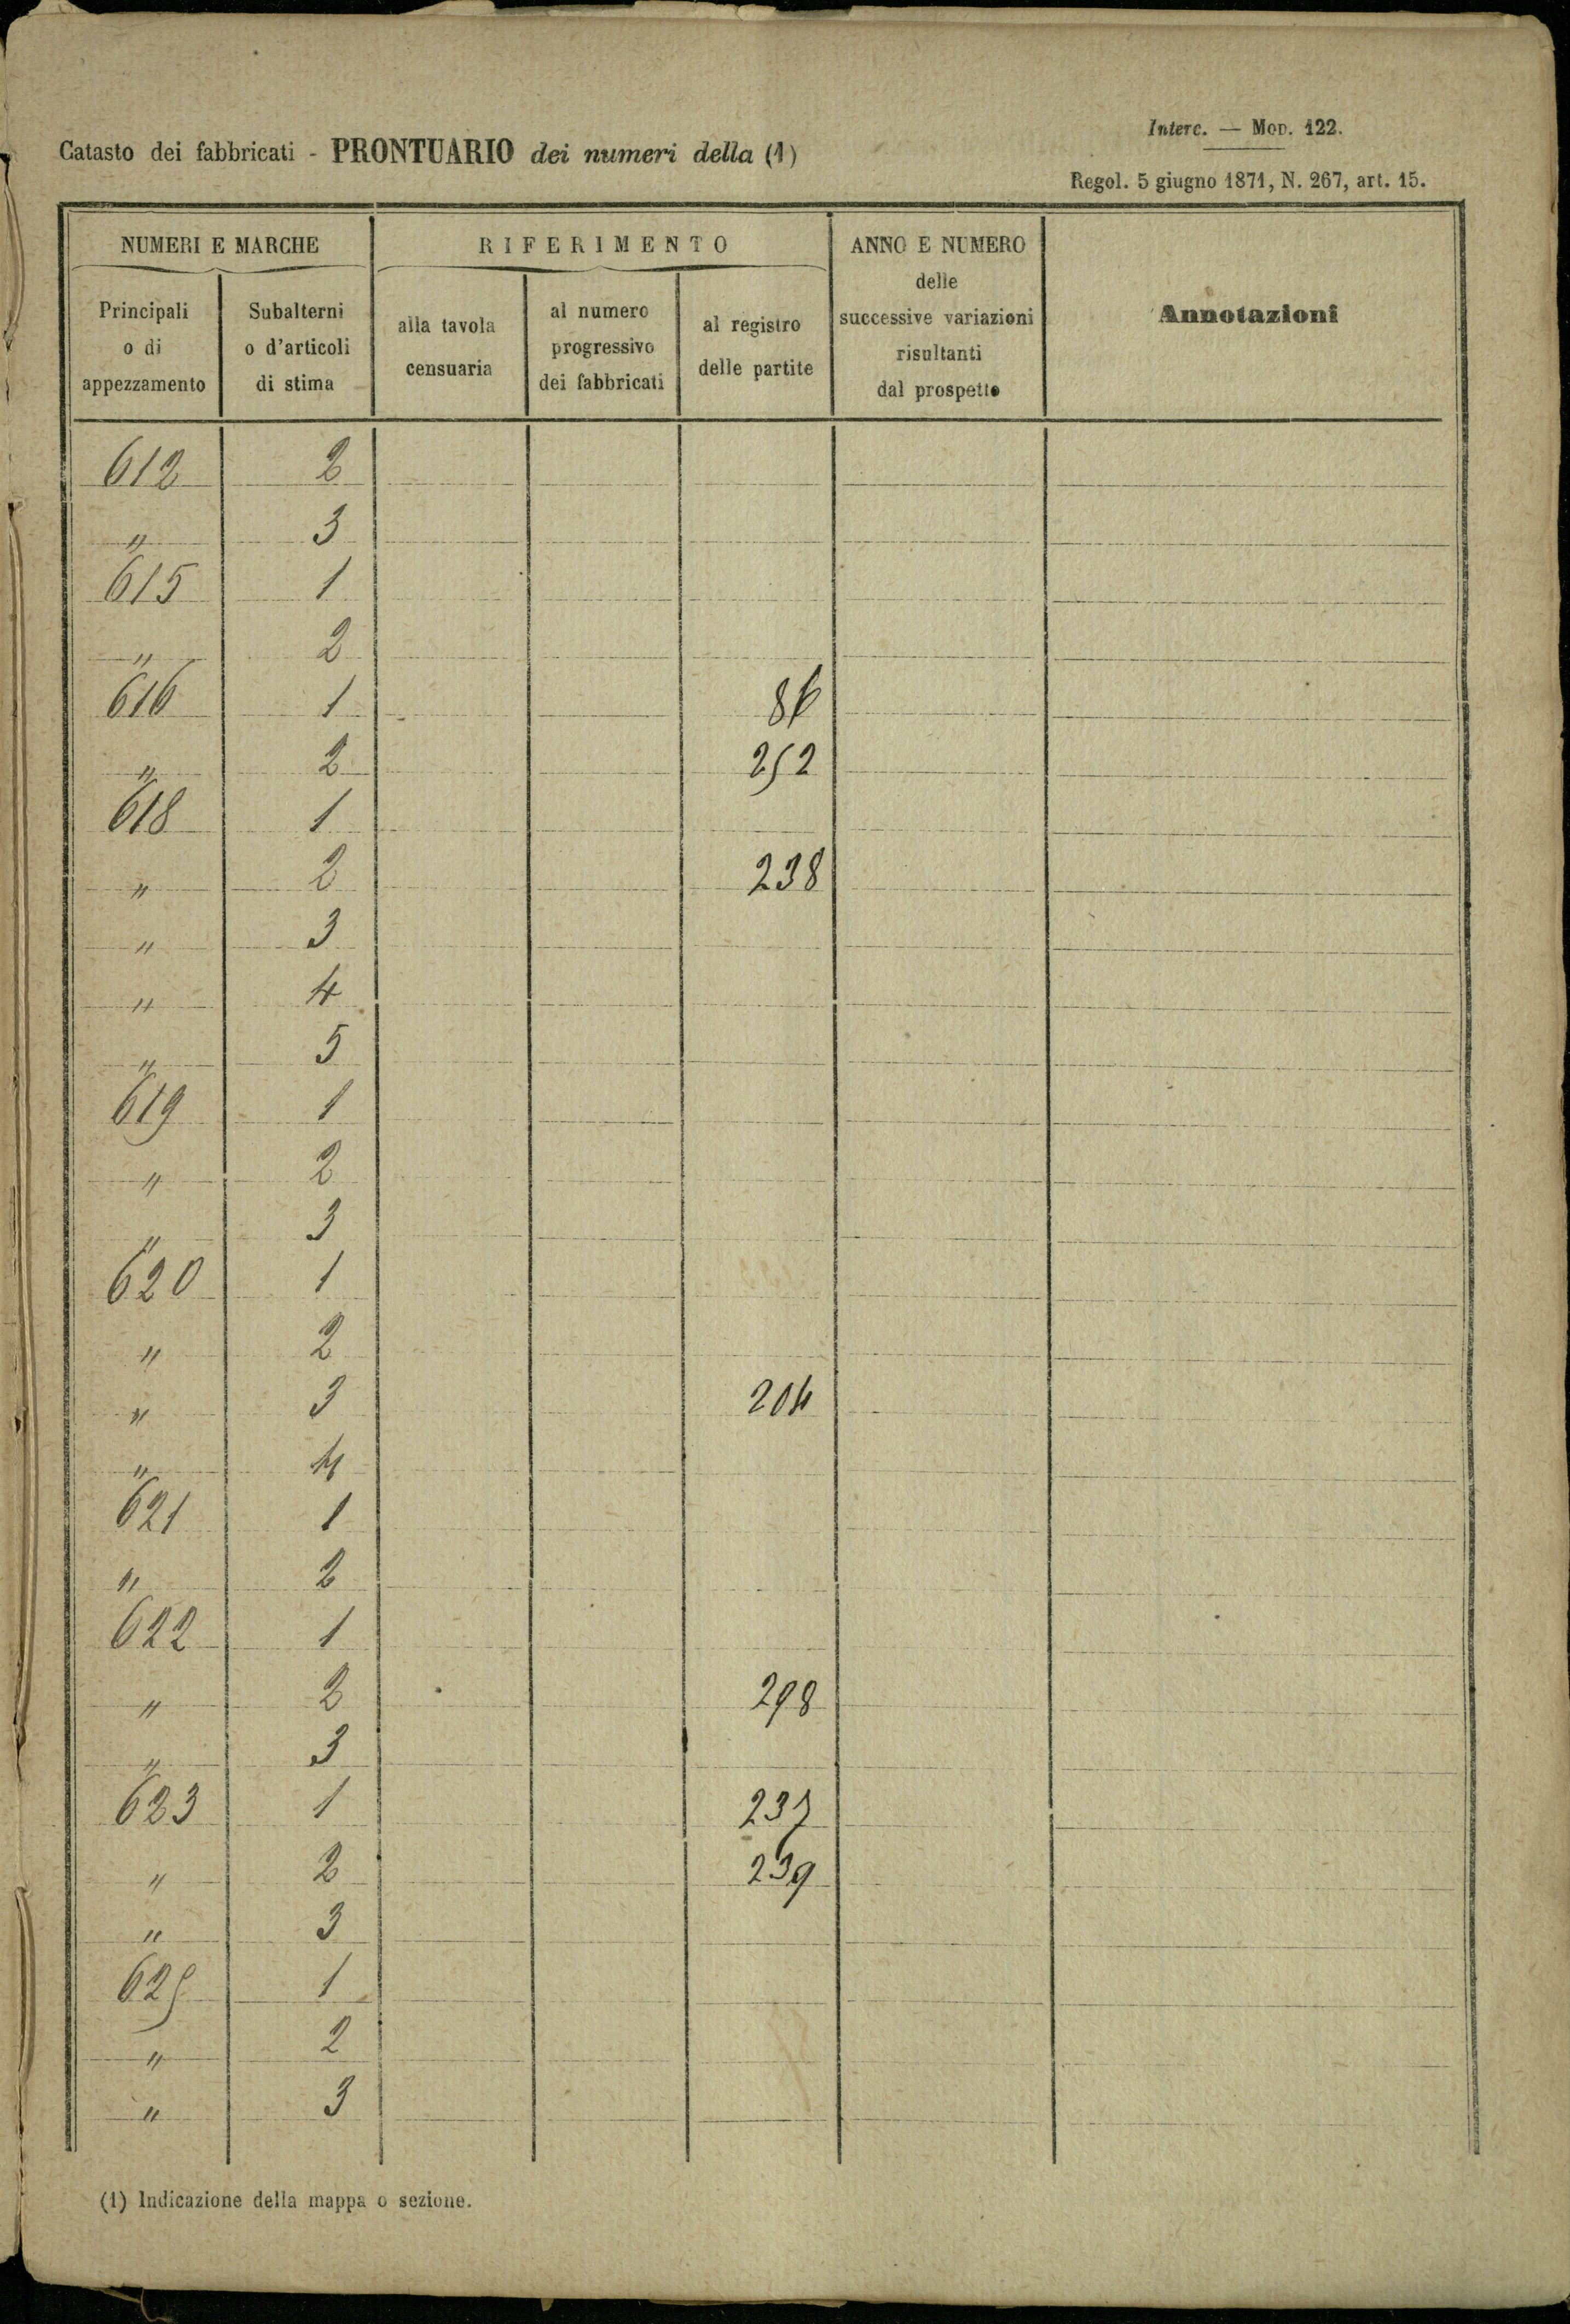 Interc. — Mod. 122.
Catasto dei fabbricati - PRONTUARIO dei numeri della (1)
Regol. 5 giugno 1871, N. 267, art. 15.
NUMERI E MARCHE
RIFERIMENTO
ANNO E NUMERO
delle
successive variazioni
risultanti
dal prospetto
Annotazioni
Principali
o di
appezzamento
Subalterni
o d'articoli
di stima
alla tavola
censuaria
al numero
progressivo
dei fabbricati
al registro
delle partite
612 2
" 3
615 1
" 2
616 1 86
" 2 252
618 1
" 2 238
" 3
" 4
" 5
619 1
" 2
" 3
620 1
" 2
" 3 204
" 4
621 1
" 2
622 1
" 2 298
" 3
623 1 237
" 2 239
" 3
625 1
" 2
" 3
(1) Indicazione della mappa o sezione.